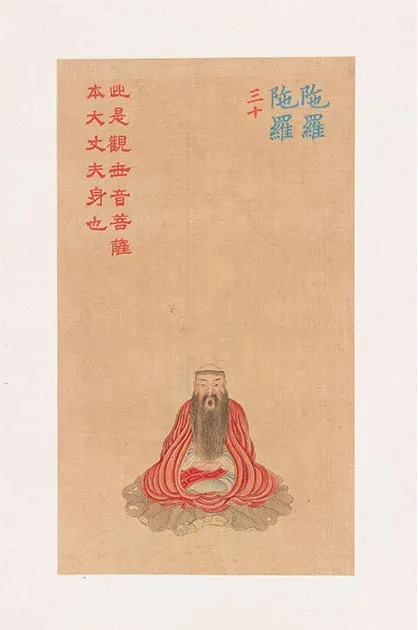 陁羅
陁羅
三十
此是觀世音菩薩
本大丈夫身也